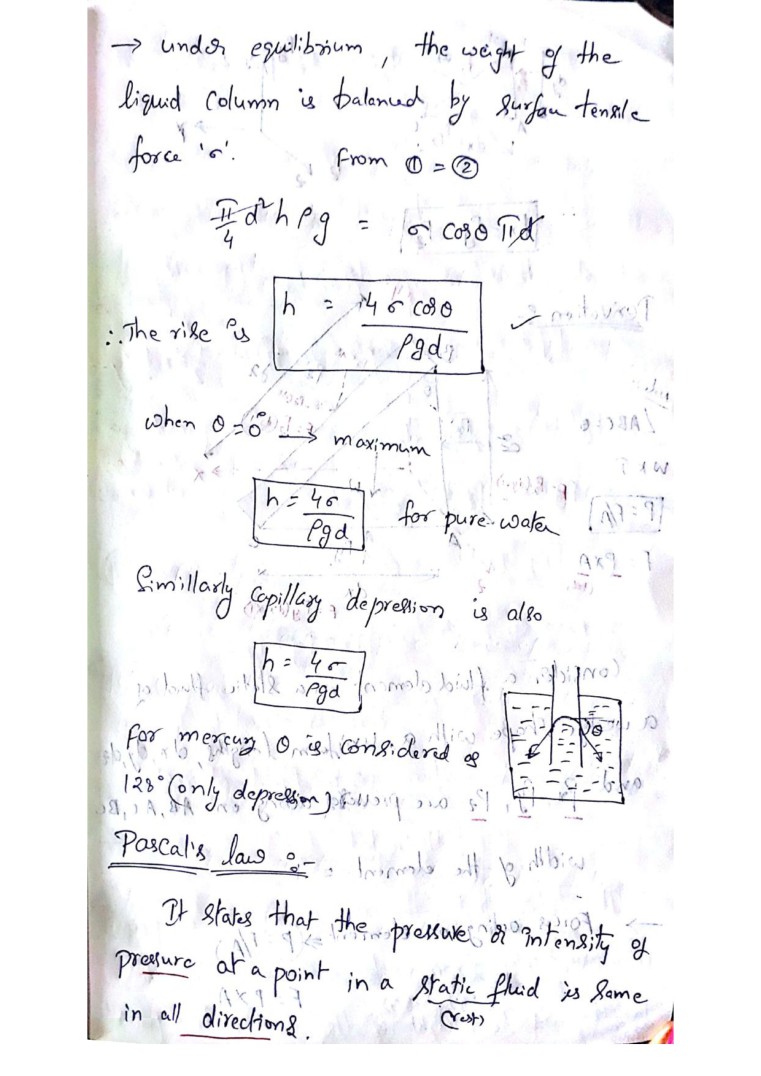 → under equilibrium, the weight of the
liquid column is balanced by surface tensile
force 'σ'. From ① = ②
π/4 d² h ρg = σ cosθ πd
∴ The rise is h = 4σ cosθ / ρgd ✓
when θ = 0° → maximum
h = 4σ / ρgd for pure water
Simillarly capillary depression is also
h = 4σ / ρgd
for mercury θ is considered as
θ
128° (only depression)
Pascal's law :-
It states that the pressure or intensity of
pressure at a point in a static fluid is same
(rest)
in all directions.